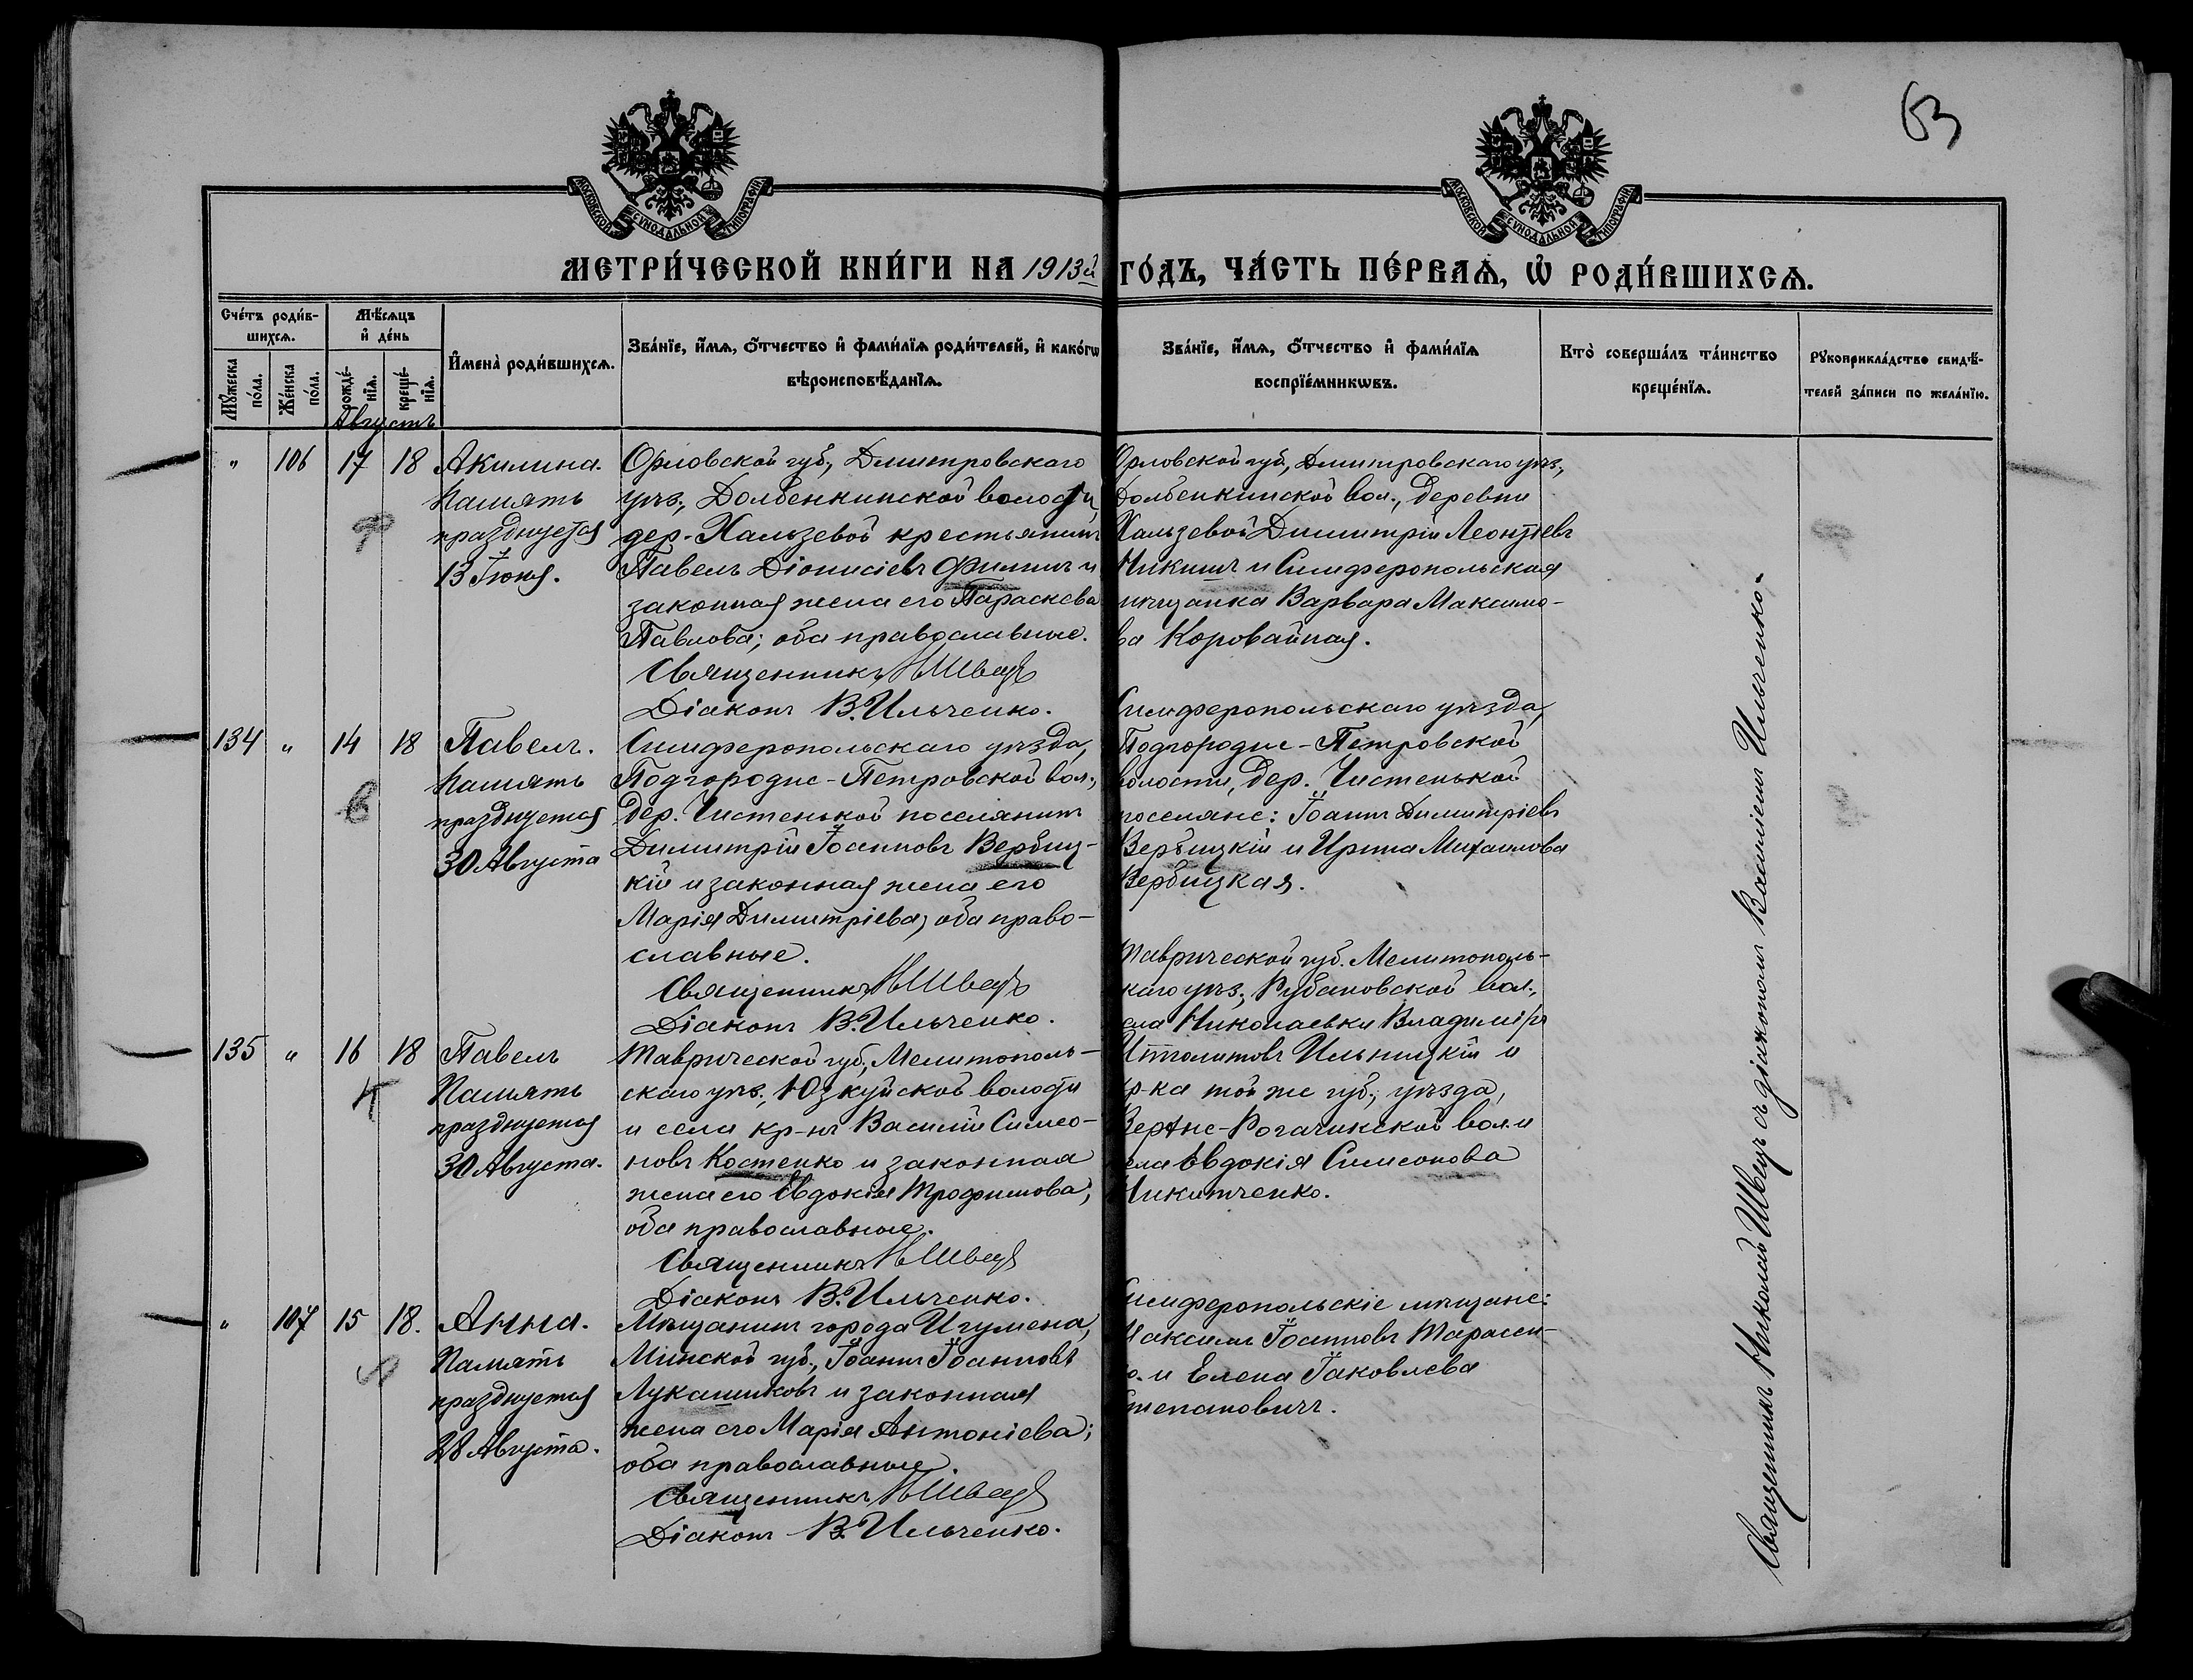 63
МОСКОВСКОЙ СѴНОДАЛЬНОЙ ТИПОГРАФІИ
МОСКОВСКОЙ СѴНОДАЛЬНОЙ ТИПОГРАФІИ
МЕТРИ́ЧЕСКОЙ КНИ́ГИ НА 1913й ГО́ДЪ, ЧА́СТЬ ПЕ́РВАѦ, Ѽ РОДИ́ВШИХСѦ.
Сче́тъ роди́в-
шихсѧ.
Мꙋ́жеска по́ла.
Же́нска по́ла.
Мѣ́сѧцъ
и҆ де́нь
рожде́-нїѧ.
креще́-нїѧ.
Августъ
И҆мена̀ роди́вшихсѧ.
Зва́нїе, и҆́мѧ, ѻ҆́тчество и҆ фами́лїѧ роди́телей, и҆ како́гѡ
вѣроисповѣ́данїѧ.
Зва́нїе, и҆́мѧ, ѻ҆́тчество и҆ фами́лїѧ
воспрїе́мникѡвъ.
Кто̀ соверша́лъ та́инство
креще́нїѧ.
Рꙋкоприкла́дство свидѣ́-
телей за́писи по жела́нїю.
" 106 17 18 Акилина.
Память
празднуется
13 Іюня.
Орловской губ., Дмитровскаго
уѣз., Долбенкинской волости,
дер. Хальзевой крестьянинъ
Павелъ Діонисіевъ Филинъ и
законная жена его Параскева
Павлова; оба православные.
Священникъ Н Швецъ
Діаконъ В. Ильченко.
Орловской губ., Дмитровскаго уѣз.,
Долбенкинской вол., деревни
Хальзевой Димитрій Леонтіевъ
Никишъ и Симферопольская
мѣщанка Варвара Максимо-
ва Коровайная.
134 " 14 18 Павелъ.
Память
празднуется
30 Августа
Симферопольскаго уѣзда,
Подгородне-Петровской вол.,
дер. Чистенькой поселянинъ
Димитрій Іоанновъ Вербиц-
кій и законная жена его
Марія Димитріева, оба право-
славные.
Священникъ Н Швецъ
Діаконъ В. Ильченко.
Симферопольскаго уѣзда,
Подгородне-Петровской
волости, дер. Чистенькой
поселяне: Іоаннъ Димитріевъ
Вербицкій и Ирина Михаилова
Вербицкая.
135 " 16 18 Павелъ
Память
празднуется
30 Августа.
Таврической губ., Мелитополь-
скаго уѣз., Юзкуйской волости
и села кр-нъ Василій Симео-
новъ Костенко и законная
жена его Евдокія Трофимова;
оба православные.
Священникъ Н Швецъ
Діаконъ В. Ильченко.
Таврической губ. Мелитополь-
скаго уѣз., Рубановской вол.,
села Николаевки Владиміръ
Ипполитовъ Ильницкій и
кр-ка той же губ., уѣзда,
Верхне-Рогачикской вол. и
села Евдокія Симеонова
Никитченко.
" 107 15 18. Анна.
Память
празднуется
28 Августа.
Мѣщанинъ города Игумена,
Минской губ., Іоаннъ Іоанновъ
Лукашиковъ и законная
жена его Марія Антоніева;
оба православные.
Священникъ Н Швецъ
Діаконъ В. Ильченко.
Симферопольскіе мѣщане:
Максимъ Іоанновъ Тарасен-
ко и Елена Іаковлева
Степановичъ.
Священникъ Николай Швецъ съ діакономъ Василіемъ Ильченко.